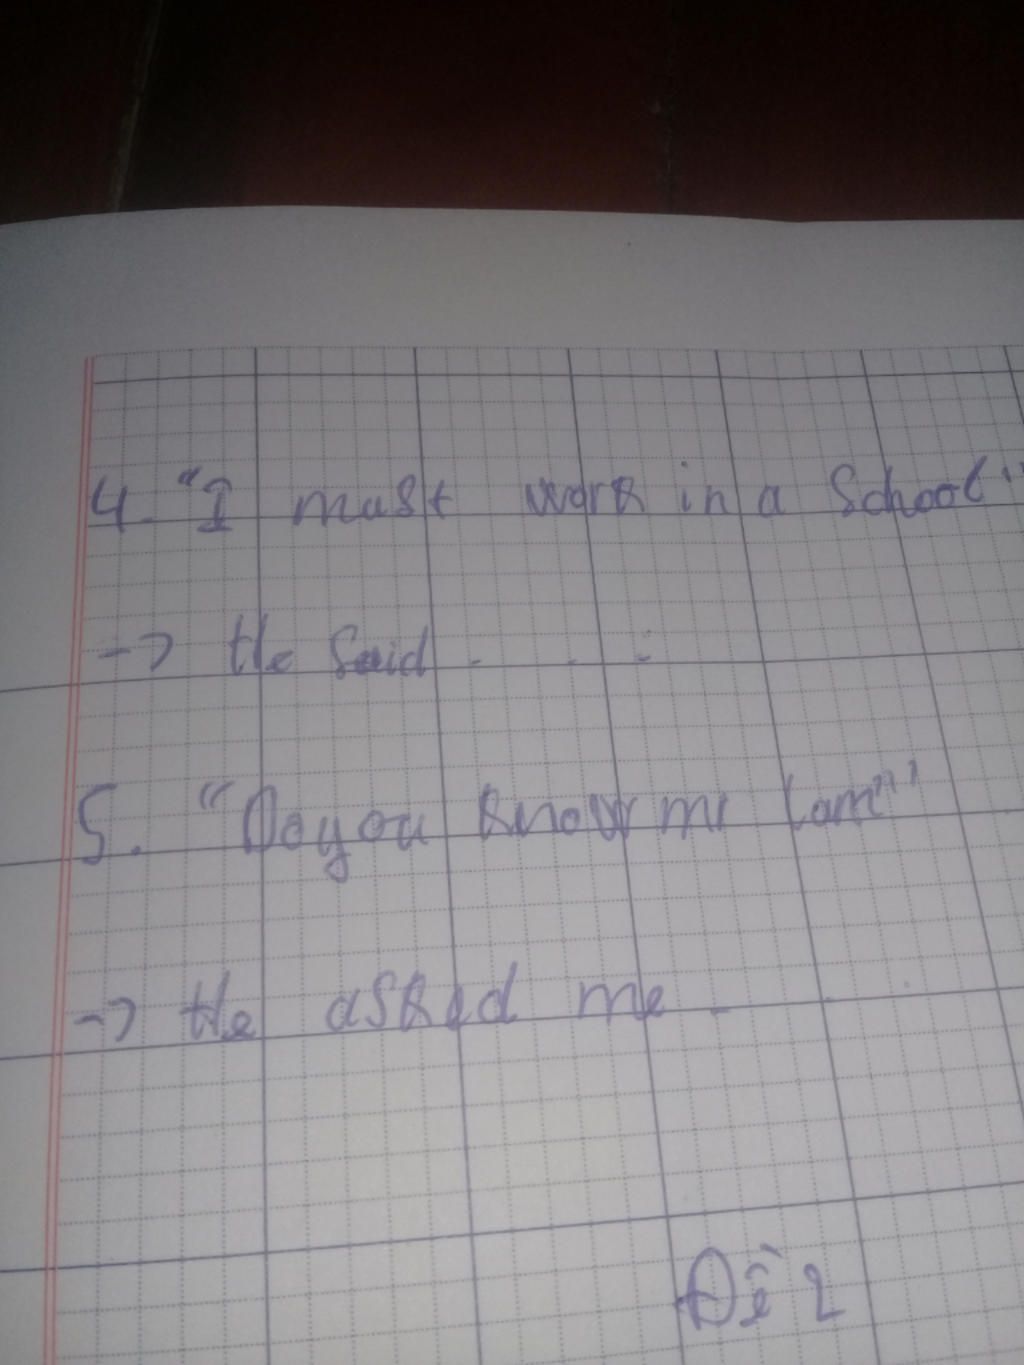 4. "I must work in a School"
-> He Said . . .
5. "Do you know mr Lam"
-> He asked me . . .
Đề 2